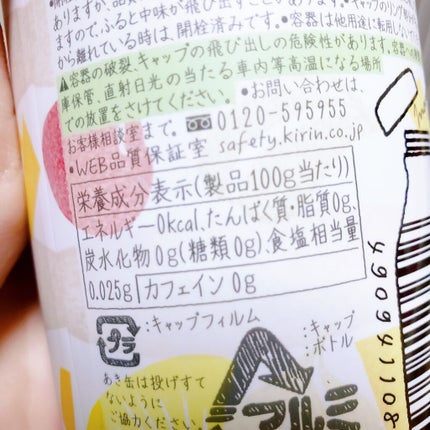 ありますが、品質
ますので、ふると中味が飛び出すことがあります。
から離れている時は、開栓済みです。•容器は他用途に転用しない
⚠容器の破裂、キャップの飛び出しの危険性があります。
庫保管、直射日光の当たる車内等高温になる場所
での放置をさけてください。 •お問い合わせは、
お客様相談室まで。 0120-595955
•WEB品質保証室 safety.kirin.co.jp
栄養成分表示(製品100g当たり)
エネルギー0kcal、たんぱく質・脂質0g、
炭水化物0g(糖類0g)、食塩相当量
0.025g カフェイン 0g
プラ :キャップフィルム :キャップ
:ボトル
あき缶は投げすて
ないように
ご協力ください。
アルミ
4909411108